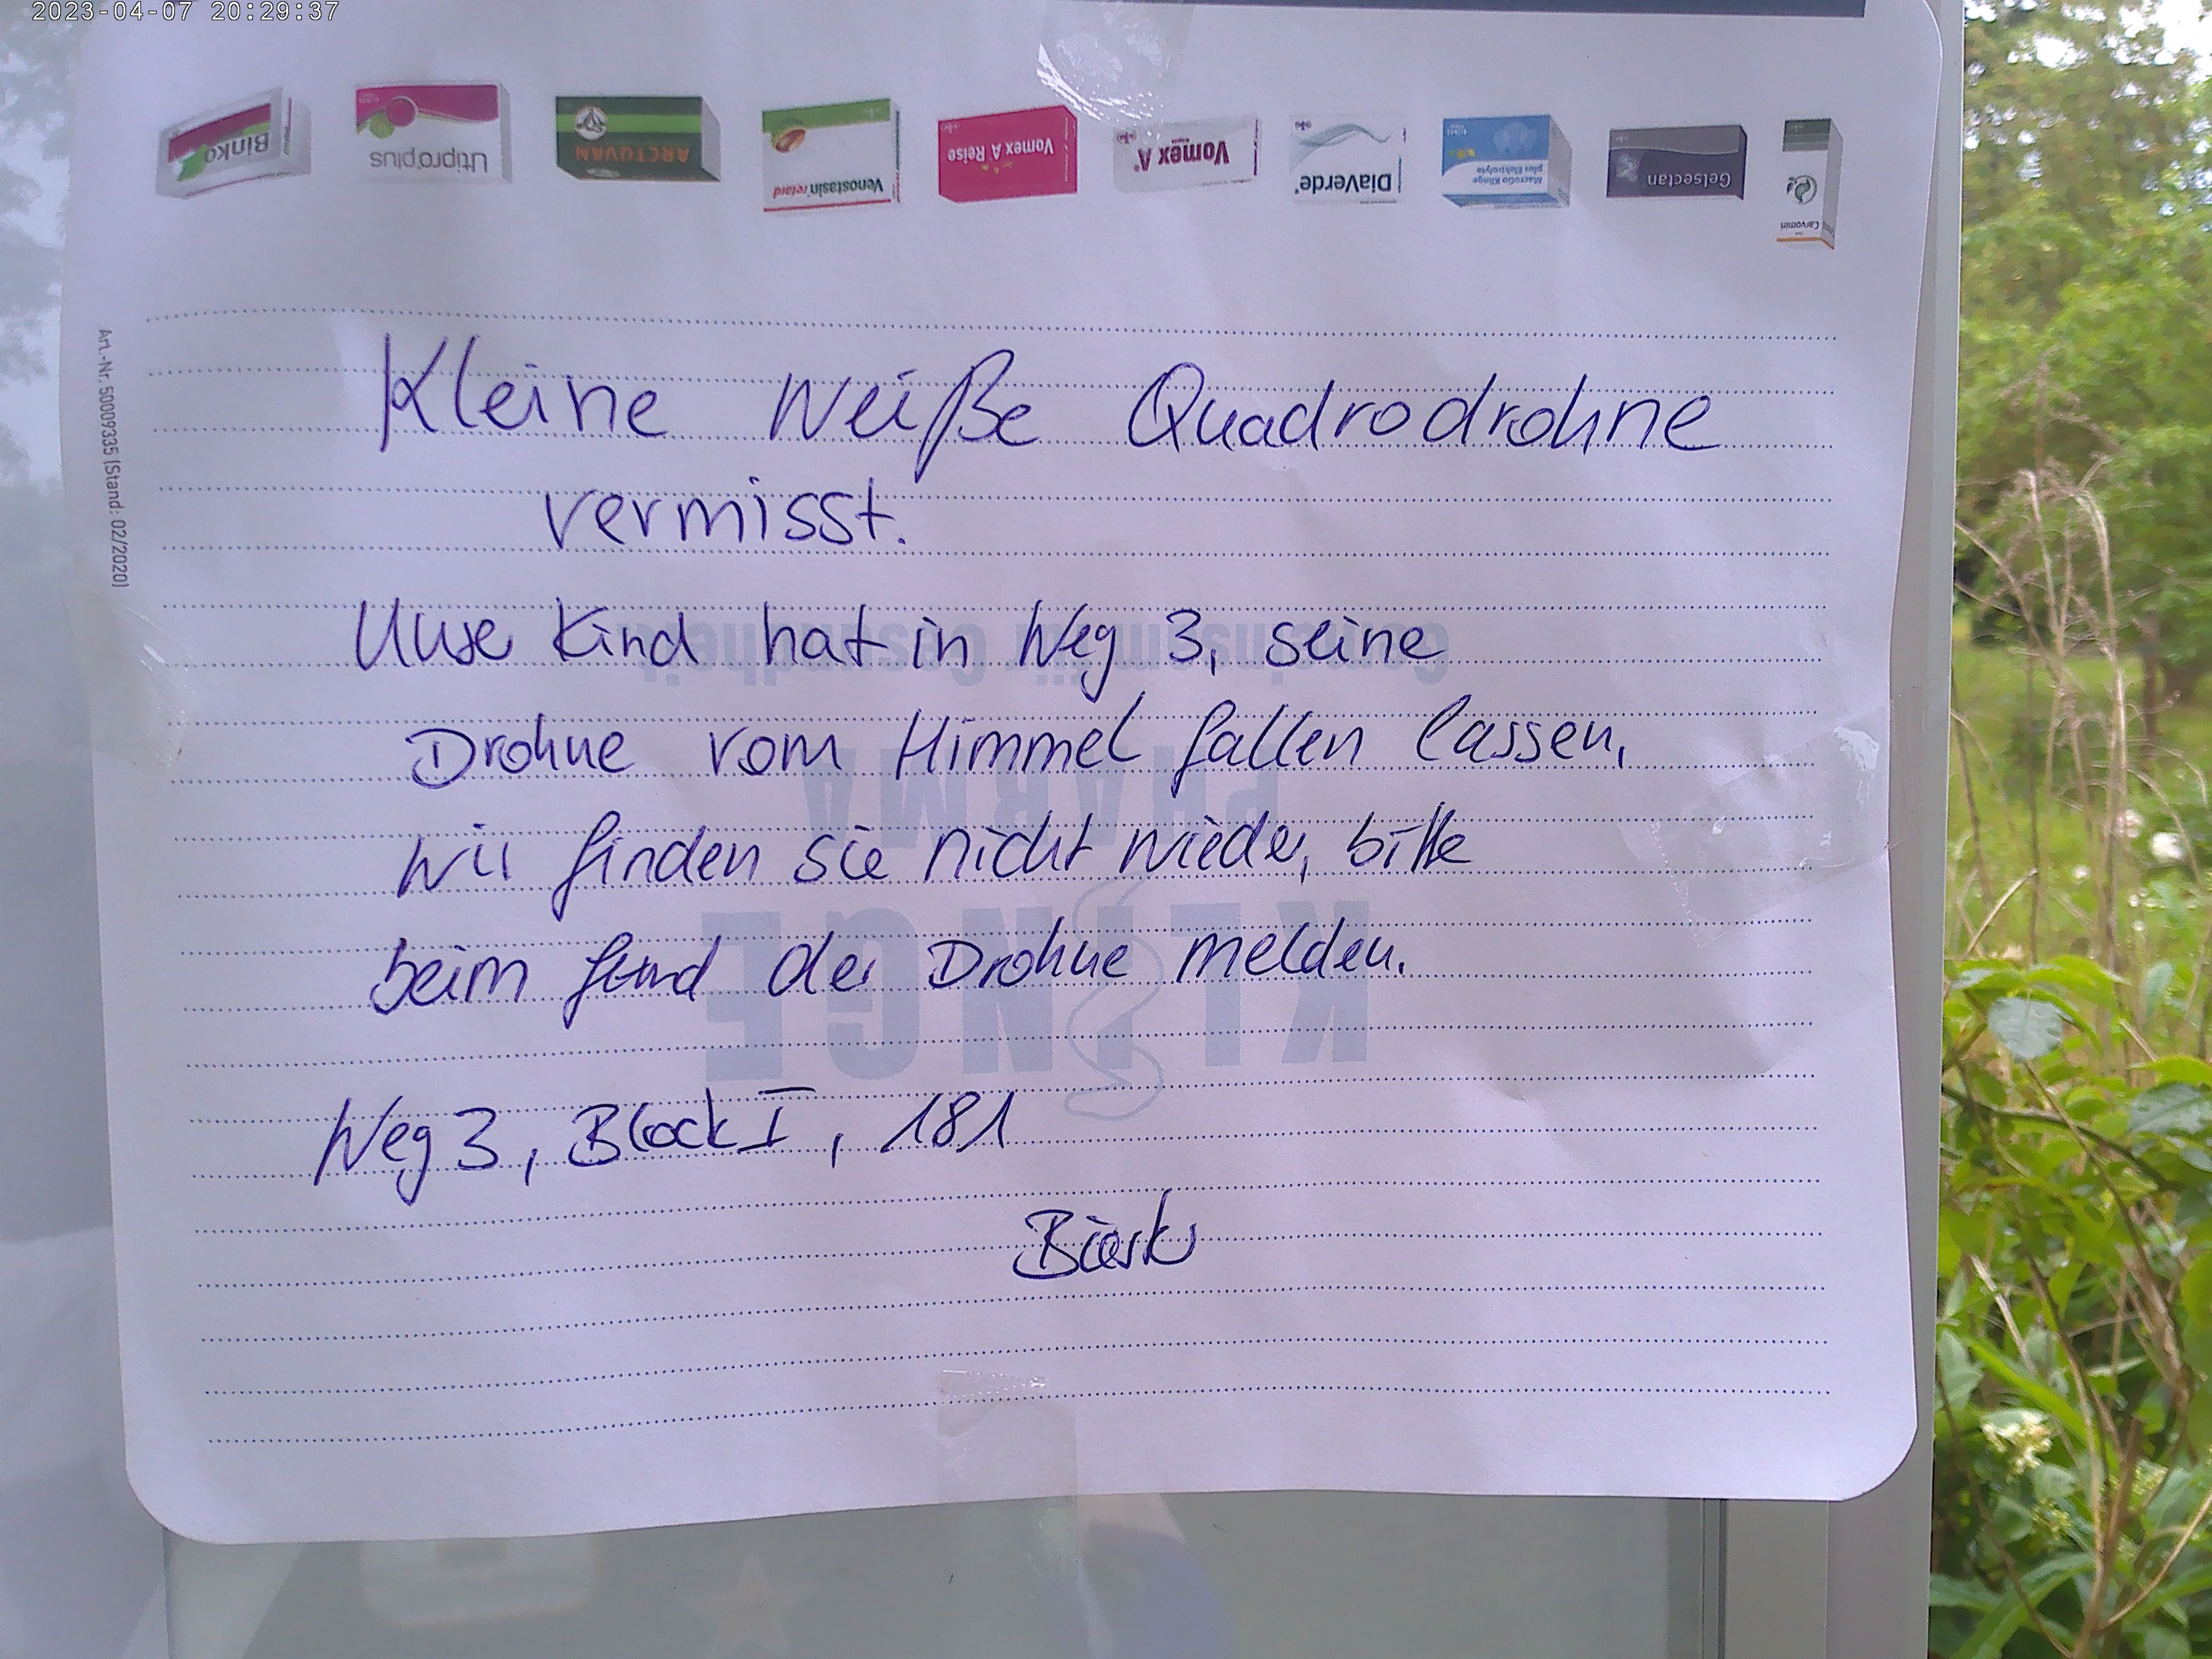 2023-04-07 20:29:37
Binko
Utipro plus
ARCTUVAN
Venostasin retard
Vomex A Reise
Vomex A
DiaVerde
MacroGo Klinge
plus Elektrolyte
Gelsectan
Carvomin
Art.-Nr. 50009335 (Stand: 02/2020)
Kleine weiße Quadrodrohne
vermisst.
Unse Kind hat in Weg 3, seine
Drohne vom Himmel fallen lassen,
wir finden sie nicht wieder, bitte
beim fund der Drohne melden.
Weg 3, Block I, 181
Gemeinsam für Gesundheit
PHARMA
KLINGE